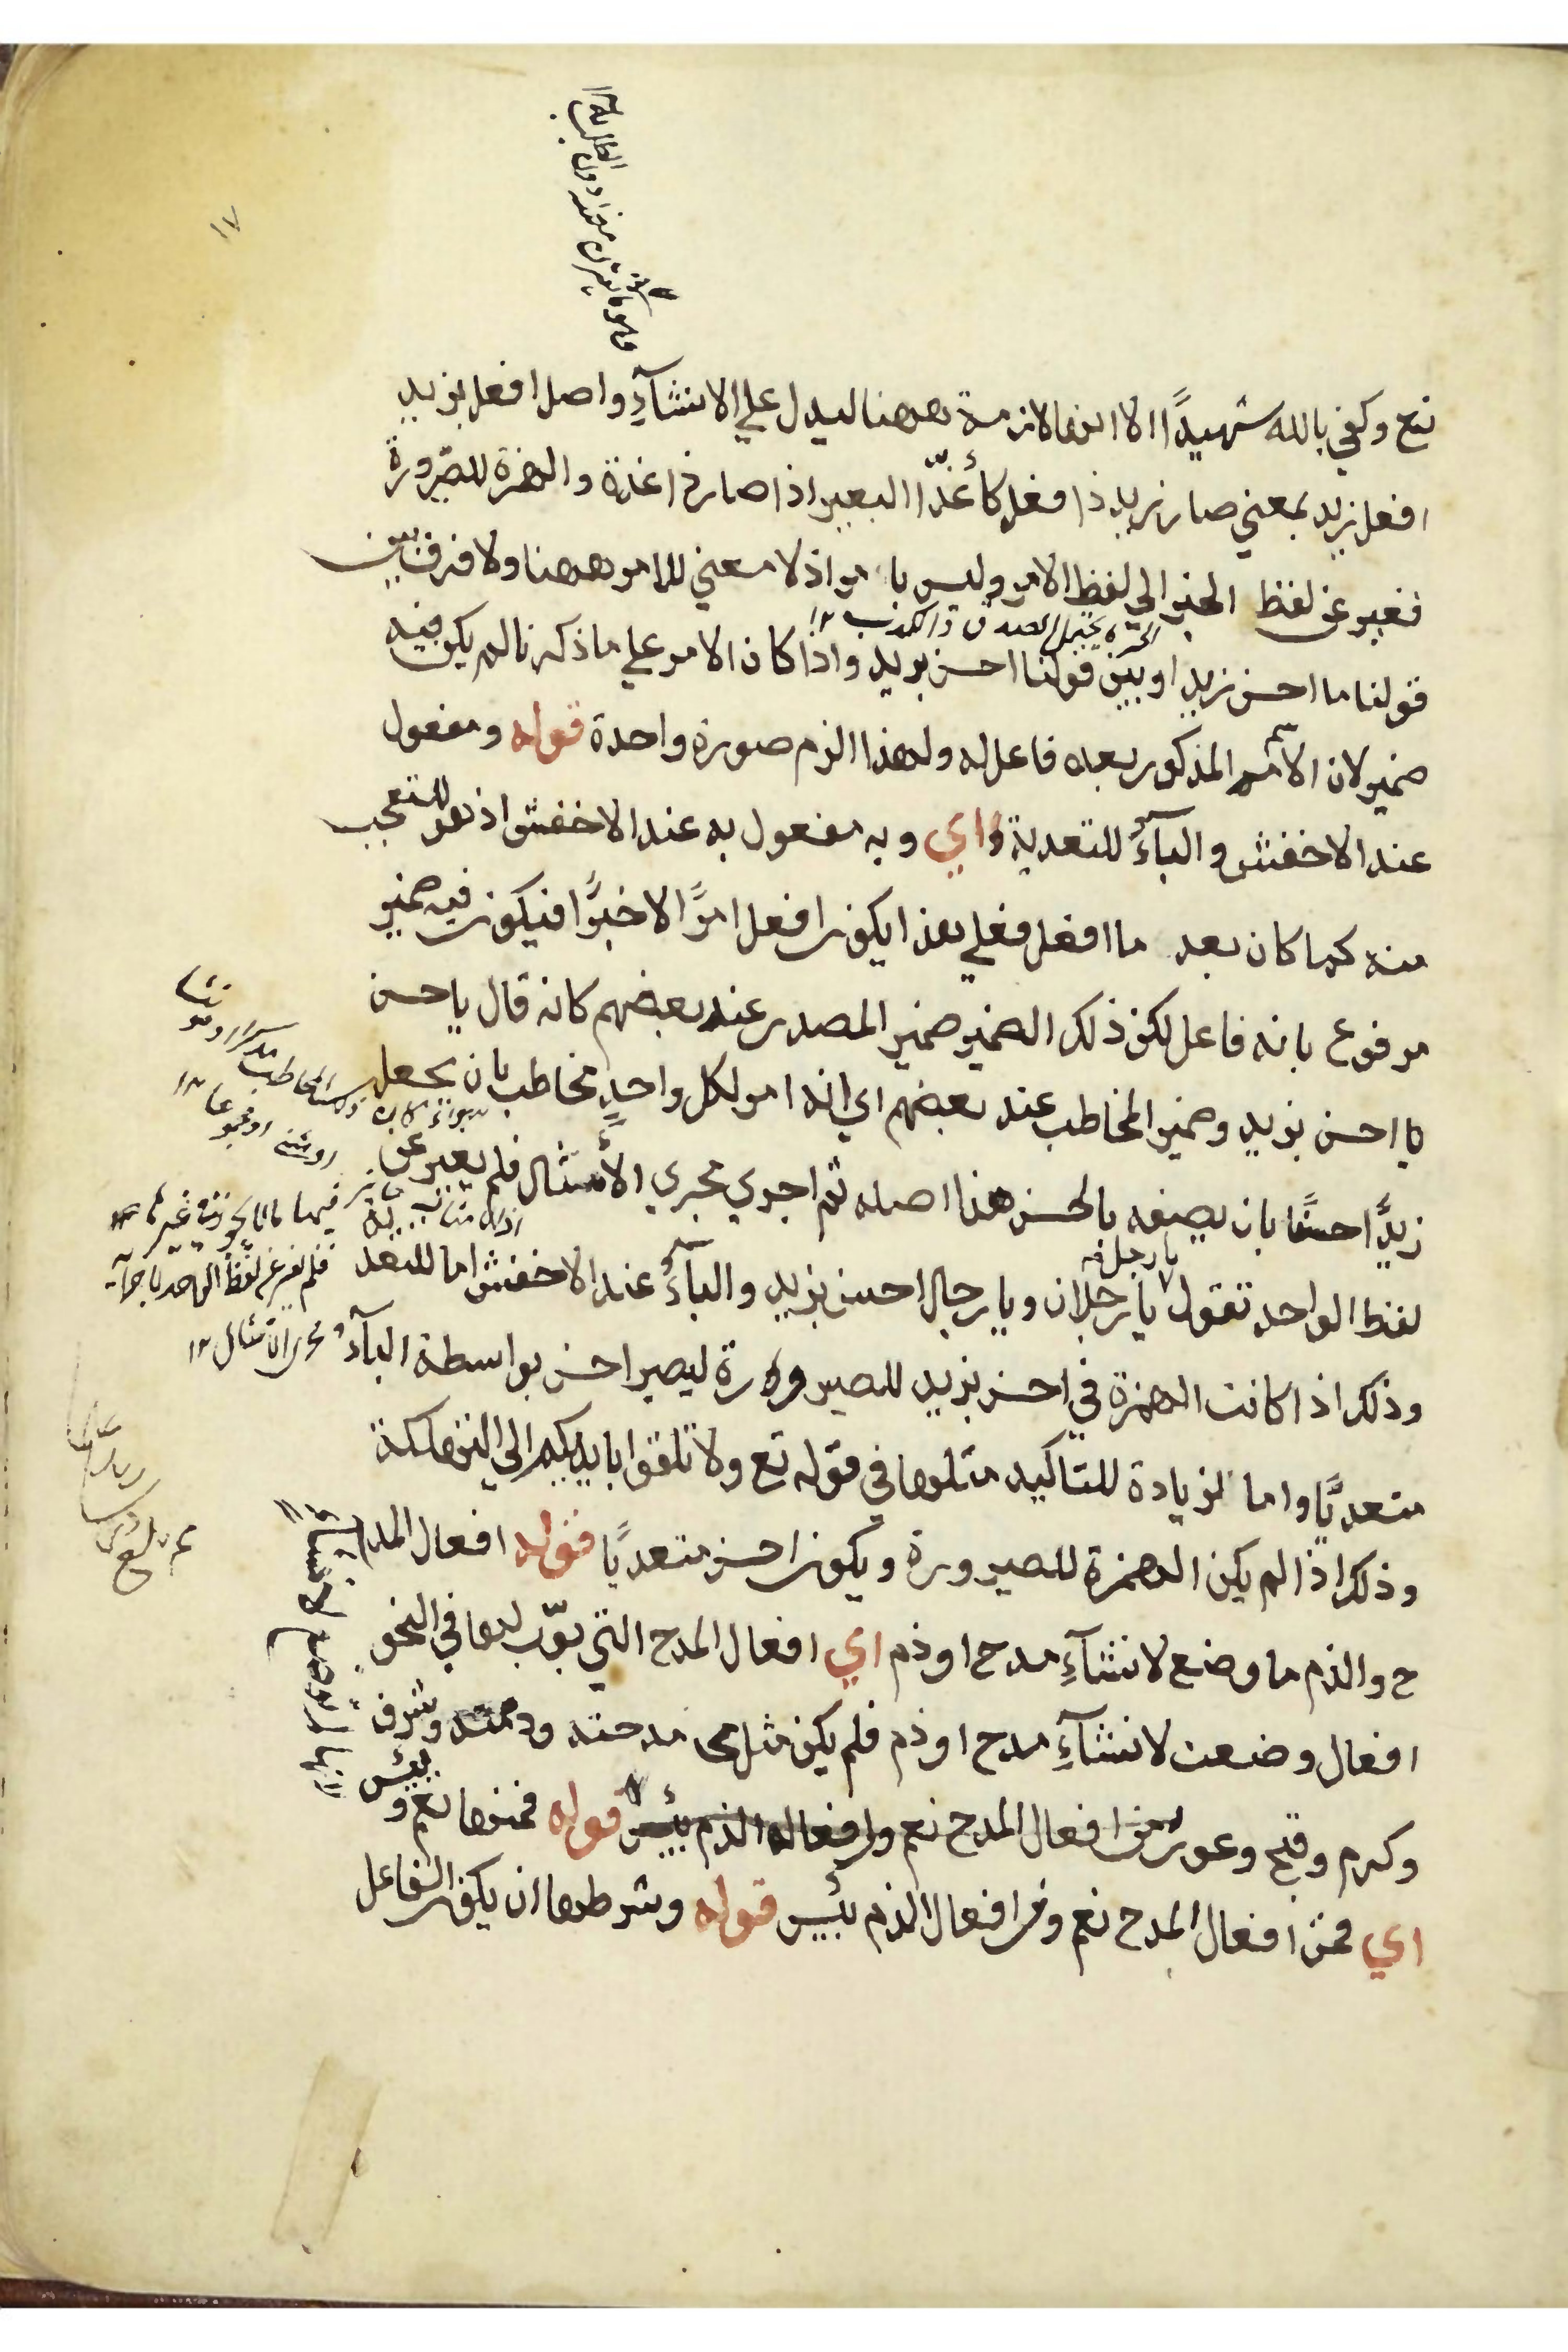 ١٧
تع وكفي بالله شهيدًا الا انها لازمة ههنا ليدل علي الانشآءِ واصل افعل بزيد
افعل زيد بمعني صار زيد ذا فعل كأغدّ البعير اذا صار ذا غدة والهمزة للصيرورة
فغير عن لفظ الخبر الي لفظ الامر وليس بامر اذ لا معني للامر ههنا ولا فرق بين
يحتمل الصدق والكذب ١٢
قولنا ما احسن زيدا وبين قولنا احسن بزيد واذا كان الامر علي ما ذكرنا لم يكن فيه
ضمير لان الاسم المذكور بعده فاعل له ولهذا الزم صورة واحدة قوله ومفعول
عند الاخفش والبآءُ للتعدية اي وبه مفعول به عند الاخفش اذ هو المتعجب
منه كما كان بعد ما افعل فعلي هذا يكون افعل امرًا لا خبرًا فيكون فيه ضمير
مرفوع بانه فاعل لكن ذلك الضمير ضمير المصدر عند بعضهم كانه قال يا حسن
يا احسن بزيد وضمير المخاطب عند بعضهم اي انه امر لكل واحدٍ مخاطب بان يجعل
زيدًا حسنًا بان يصفه بالحسن هذا اصله ثم اجري مجري الأمثال فلم يغير عن
يا رجل
لفظ الواحد تقول يا رجلان ويا رجال احسن بزيد والبآءُ عند الاخفش اما للتعد
وذلك اذا كانت الهمزة في احسن بزيد للصيرورة ليصير احسن بواسطة البآء
متعديًا واما لزيادة للتاكيد مثلها في قوله تع ولا تلقوا بايديكم الي التهلكة
وذلك اذا لم يكن الهمزة للصيرورة ويكون احسن متعديًا قوله افعال المد
ح والذم ما وضع لانشآءِ مدح او ذم اي افعال المدح التي بوّب لها في النحو
افعال وضعت لانشآءِ مدح او ذم فلم يكن مثل مدحته وذممته وشرف
وكرم وقبح وعور من افعال المدح نعم وافعال الذم بئس قوله فمنها نعم وبئس
اي فمن افعال المدح نعم ومن افعال الذم بئس قوله وشرطها ان يكون الفاعل